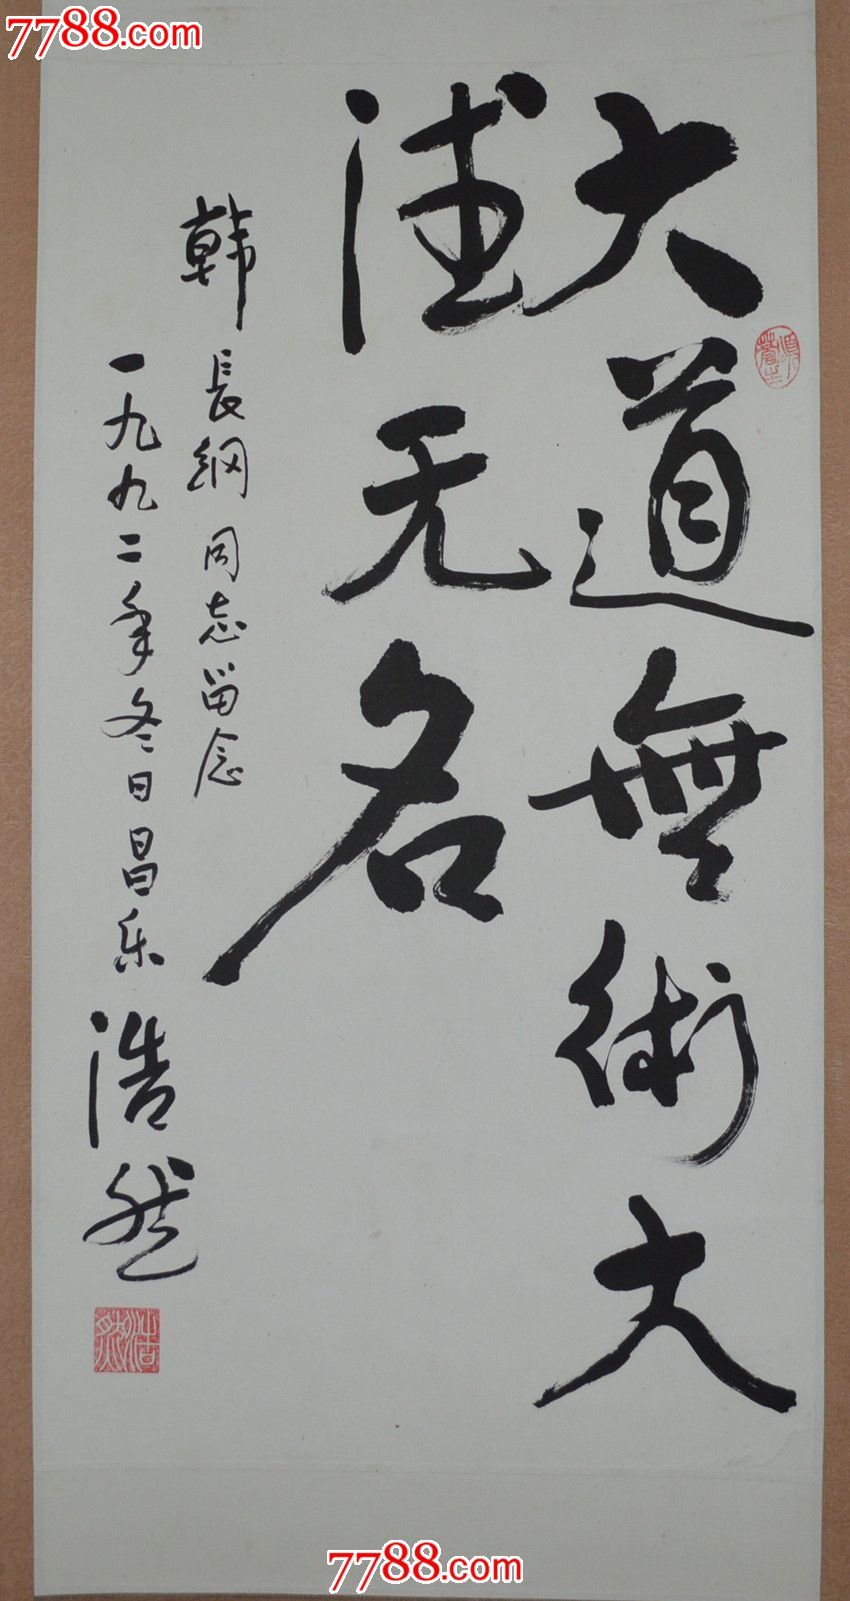 7788.com
大道無術大
德无名
韩長纲同志留念
一九九二年冬日昌乐
浩然
浩然
7788.com